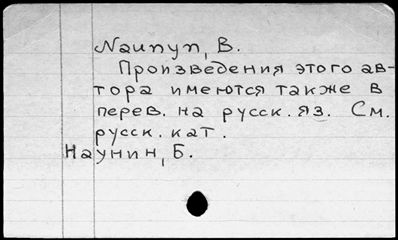 Naипуп, В.
Произведения этого ав-
тора имеются также в
перев. на русск. яз. См.
русск. кат.
Наунин, Б.